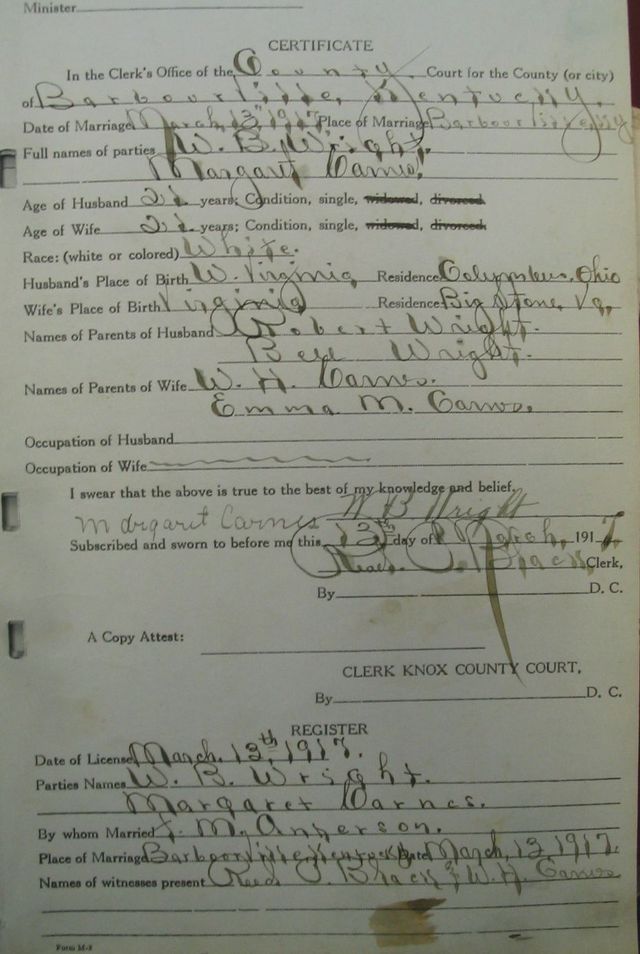 Minister
CERTIFICATE
In the Clerk's Office of the County Court for the County (or city)
of Barbourville, Kentucky.
Date of Marriage March, 13th 1917 Place of Marriage Barbourville, Ky
Full names of parties W. B. Wright.
Margaret Carnes,
Age of Husband 21 years; Condition, single, widowed, divorced
Age of Wife 21 years; Condition, single, widowed, divorced
Race: (white or colored) White.
Husband's Place of Birth W. Virginia Residence Columbus, Ohio
Wife's Place of Birth Virginia Residence Big Stone, Va,
Names of Parents of Husband Robert Wright.
Bell Wright.
Names of Parents of Wife W. H. Carnes.
Emma M. Carnes.
Occupation of Husband
Occupation of Wife
I swear that the above is true to the best of my knowledge and belief.
W B Wright
Margaret Carnes
Subscribed and sworn to before me this 13th day of March, 1917
Read P. Black Clerk,
By D. C.
A Copy Attest:
CLERK KNOX COUNTY COURT,
By D. C.
REGISTER
Date of License March, 13th, 1917.
Parties Names W. B. Wright.
Margaret Carnes.
By whom Married J. M. Anderson.
Place of Marriage Barbourville Kentucky Date March, 13 1917.
Names of witnesses present Read P. Black & W. H. Carnes
Form M-2